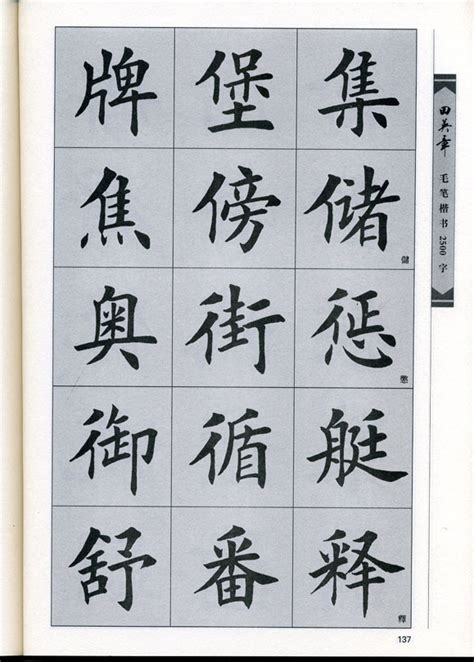 牌 堡 集
焦 傍 储 儲
奥 街 惩 懲
御 循 艇
舒 番 释 釋
田英章 毛笔楷书 2500 字
137